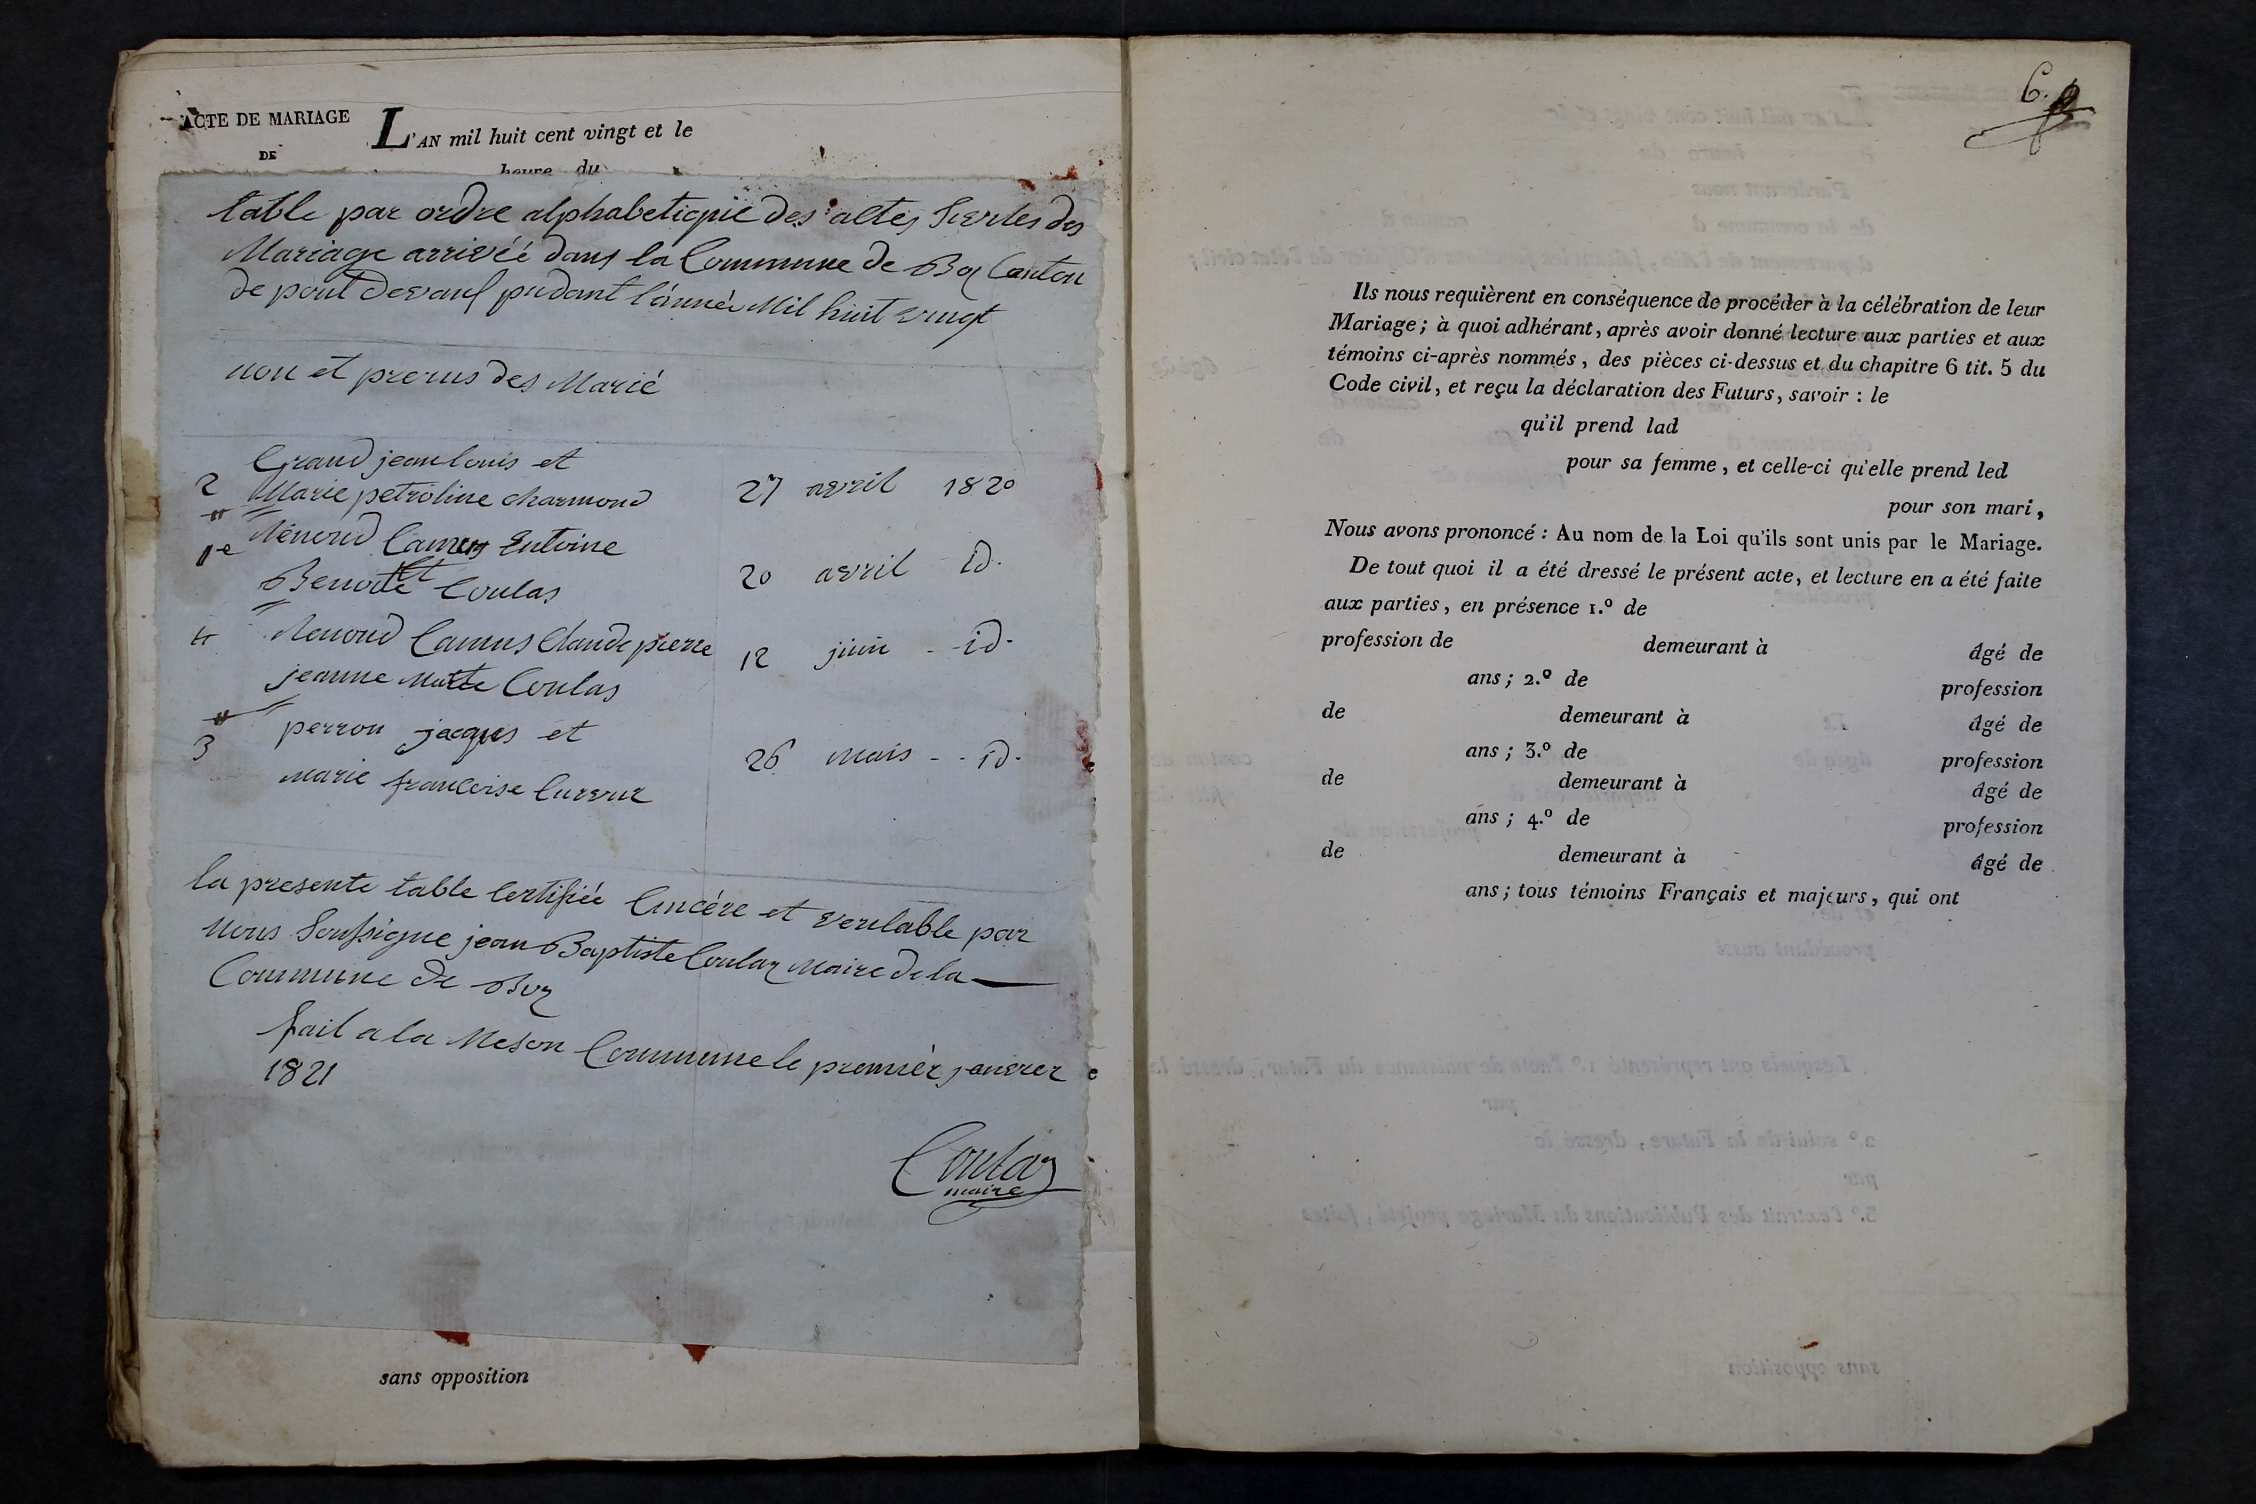 ACTE DE MARIAGE
DE
L'AN mil huit cent vingt et le
heure du
table par ordre alphabetique des actes des
Mariage arrivéé dans la Commune de Boz Canton
de pont devaux pudant l'année Mil huit vingt
non et prenus des Marié
Grand jean louis et
2 Marie petroline charmond 27 avril 1820
1e Renoud Camus Entoine
et
Benoite Coulas 20 avril - id.
4 Renoud Camus Claude pierre 12 juin - - id-
jeanne Coulas
3 perron jacques et
marie francoise 26 mais - - id.
la presente table Certifiée Cincére et veritable par
nous Soussigne jean Baptiste Coulaz Maire de la
Commune de Boz
fait a la Meson Commune le premièr janvier
1821
Coulaz
maire
sans opposition
6.
Ils nous requièrent en conséquence de procéder à la célébration de leur
Mariage ; à quoi adhérant, après avoir donné lecture aux parties et aux
témoins ci-après nommés, des pièces ci-dessus et du chapitre 6 tit. 5 du
Code civil, et reçu la déclaration des Futurs, savoir : le
qu'il prend lad
pour sa femme, et celle-ci qu'elle prend led
pour son mari,
Nous avons prononcé : Au nom de la Loi qu'ils sont unis par le Mariage.
De tout quoi il a été dressé le présent acte, et lecture en a été faite
aux parties, en présence 1.º de
profession de demeurant à âgé de
ans ; 2.º de profession
de demeurant à âgé de
ans ; 3.º de profession
de demeurant à âgé de
ans ; 4.º de profession
de demeurant à âgé de
ans ; tous témoins Français et majeurs, qui ont